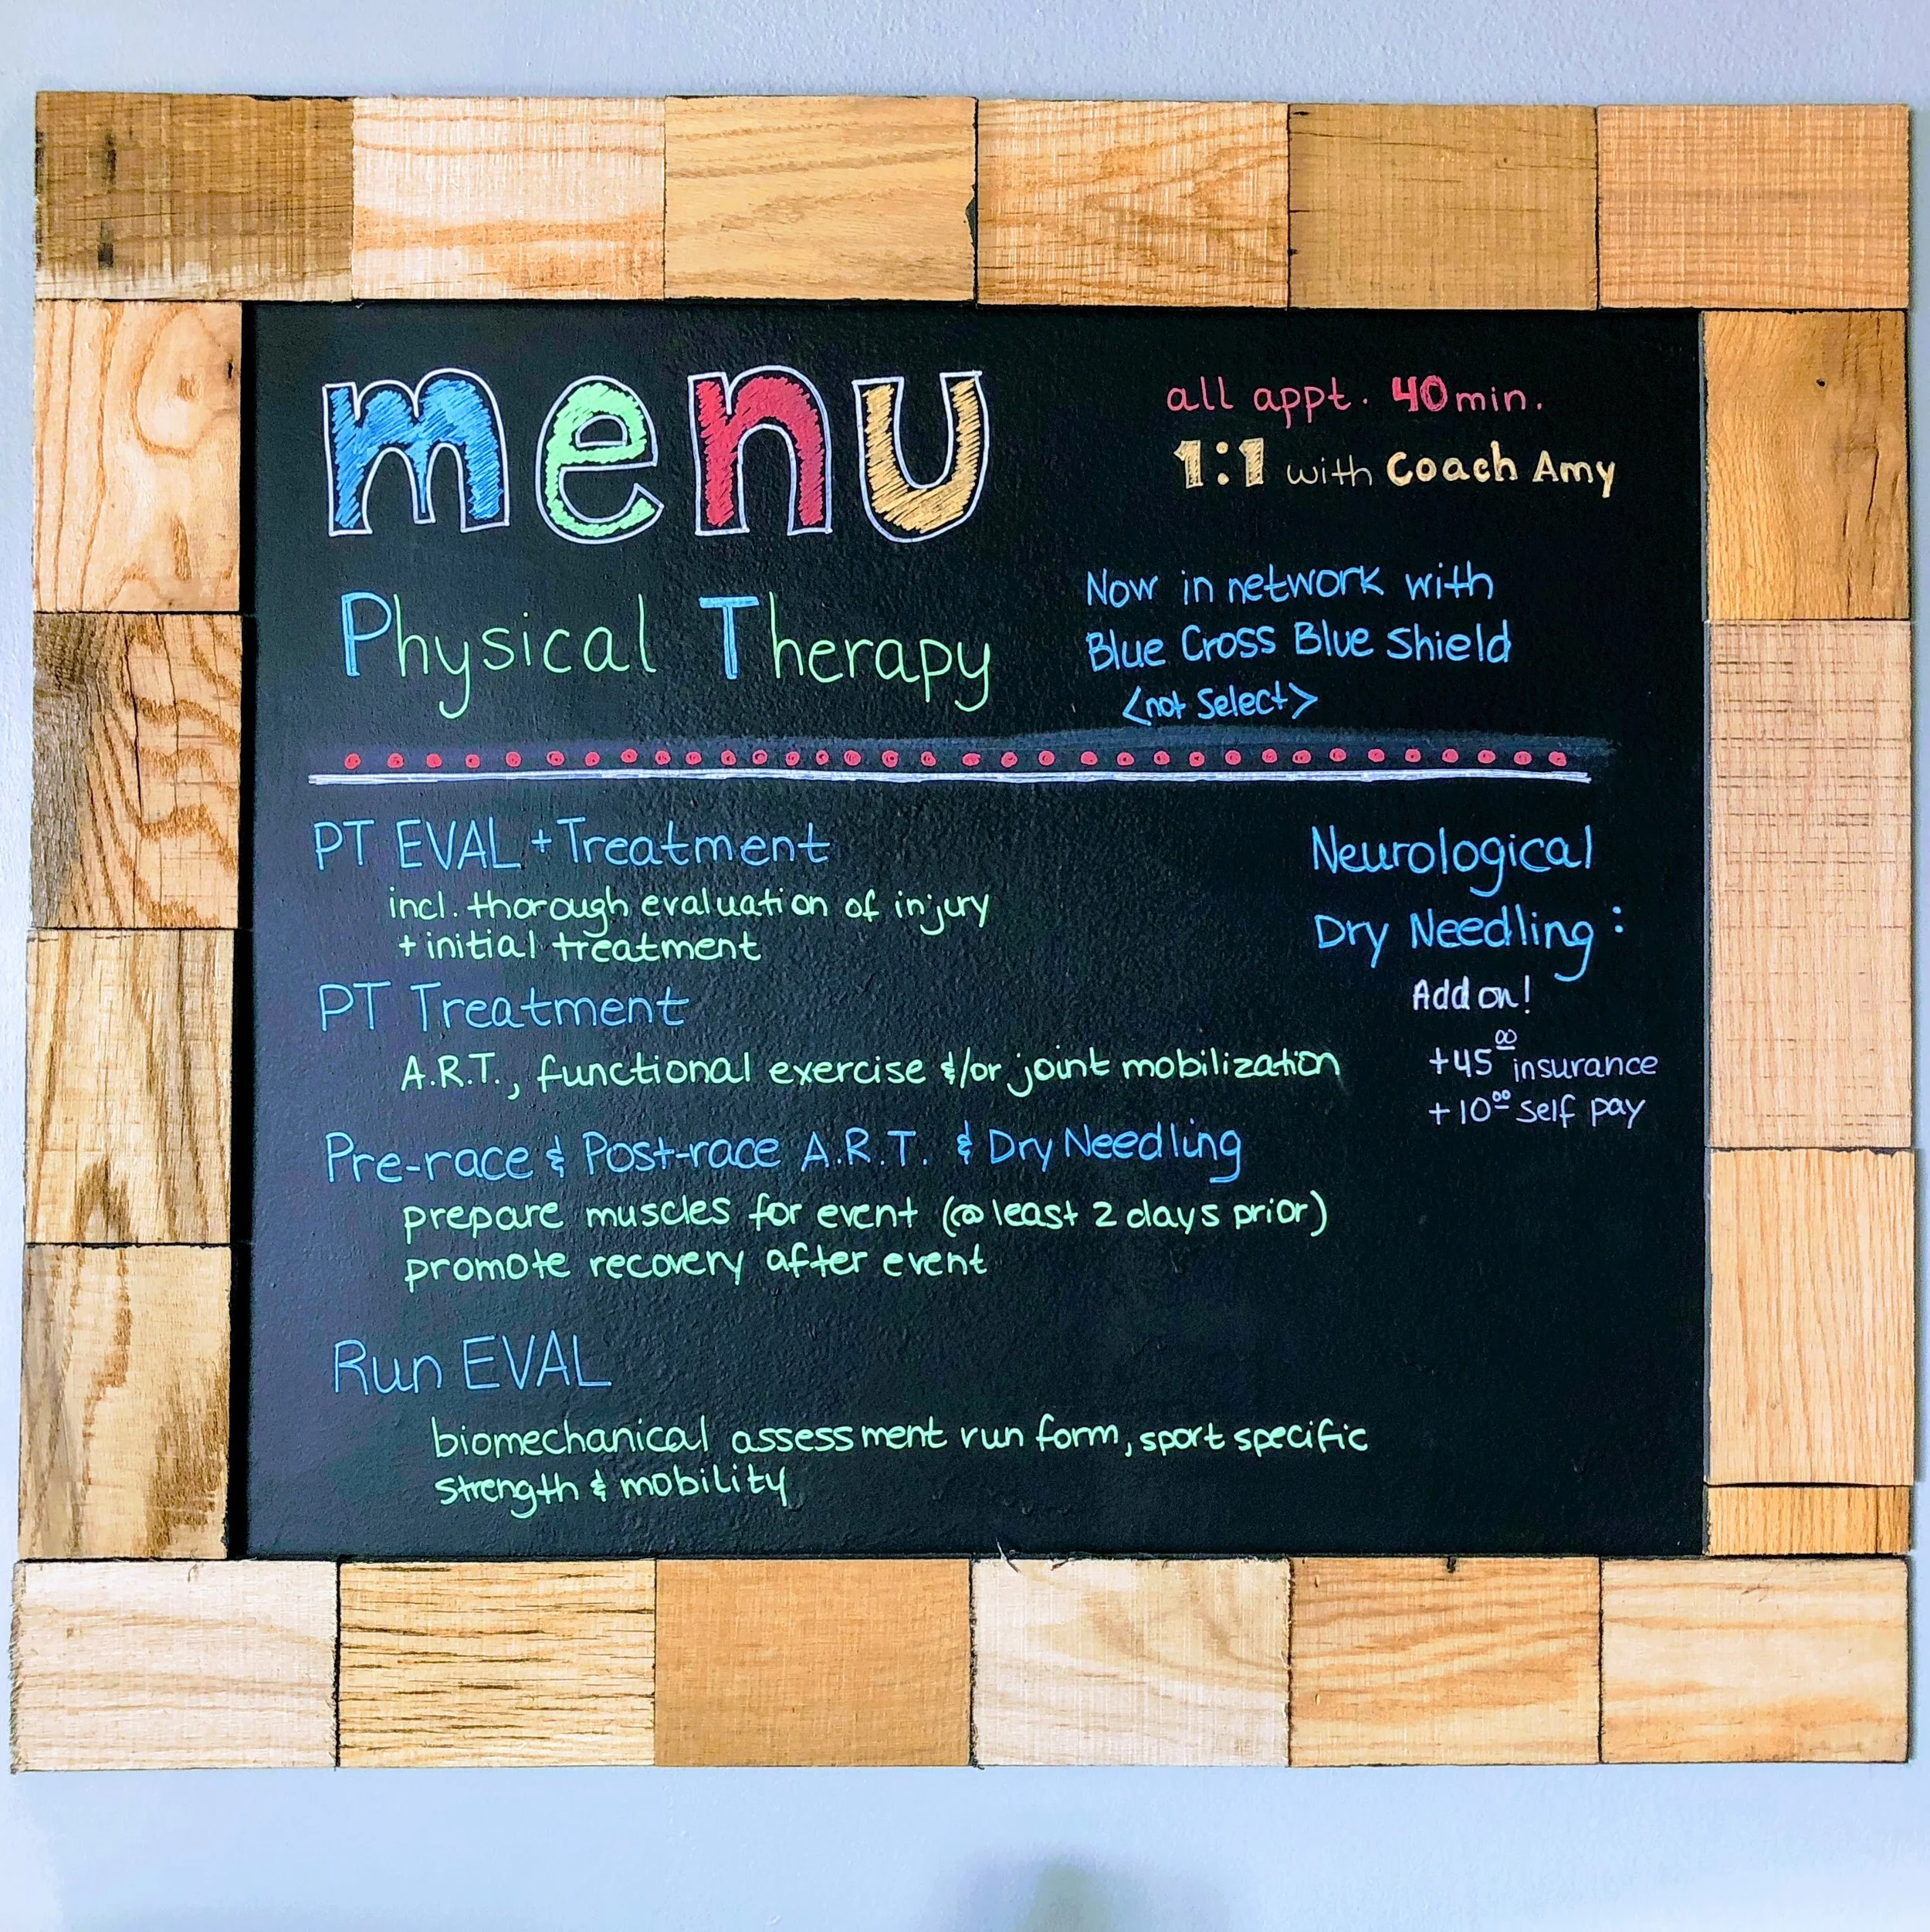 menu
Physical Therapy
all appt. 40 min.
1:1 with Coach Amy
Now in network with
Blue Cross Blue Shield
<not Select>
PT EVAL + Treatment
incl. thorough evaluation of injury
+ initial treatment
PT Treatment
A.R.T., functional exercise &/or joint mobilization
Pre-race & Post-race A.R.T. & Dry Needling
prepare muscles for event (@ least 2 days prior)
promote recovery after event
Run EVAL
biomechanical assessment run form, sport specific
strength & mobility
Neurological
Dry Needling:
Add on!
+45⁰⁰ insurance
+10⁰⁰ self pay